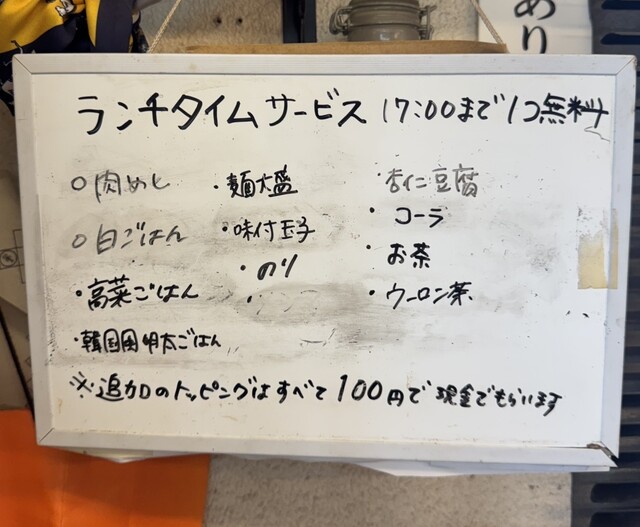 あり
ランチタイムサービス 17:00まで1つ無料
○肉めし
○白ごはん
・高菜ごはん
・韓国風明太ごはん
・麺大盛
・味付玉子
・のり
・
・杏仁豆腐
・コーラ
・お茶
・ウーロン茶
※追加のトッピングはすべて100円で現金でもらいます